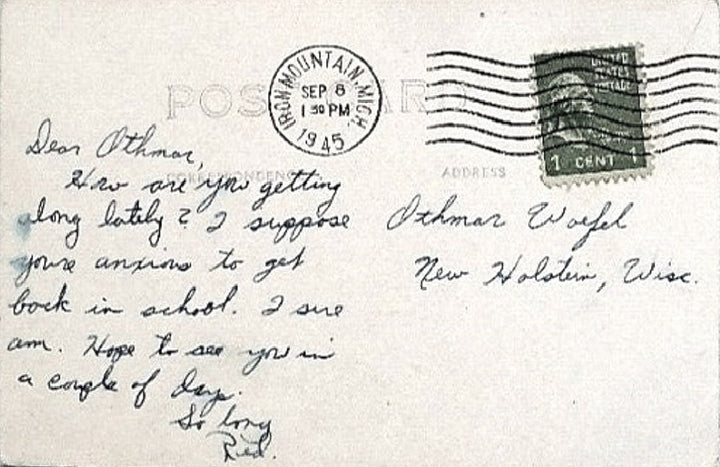 POST CARD
IRON MOUNTAIN, MICH.
SEP 8
1 30 PM
1945
UNITED
STATES
POSTAGE
1 CENT 1
CORRESPONDENCE
ADDRESS
Dear Othmar,
How are you getting
along lately? I suppose
you're anxious to get
back in school. I sure
am. Hope to see you in
a couple of days.
So long
Red.
Othmar Woefel
New Holstein, Wisc.